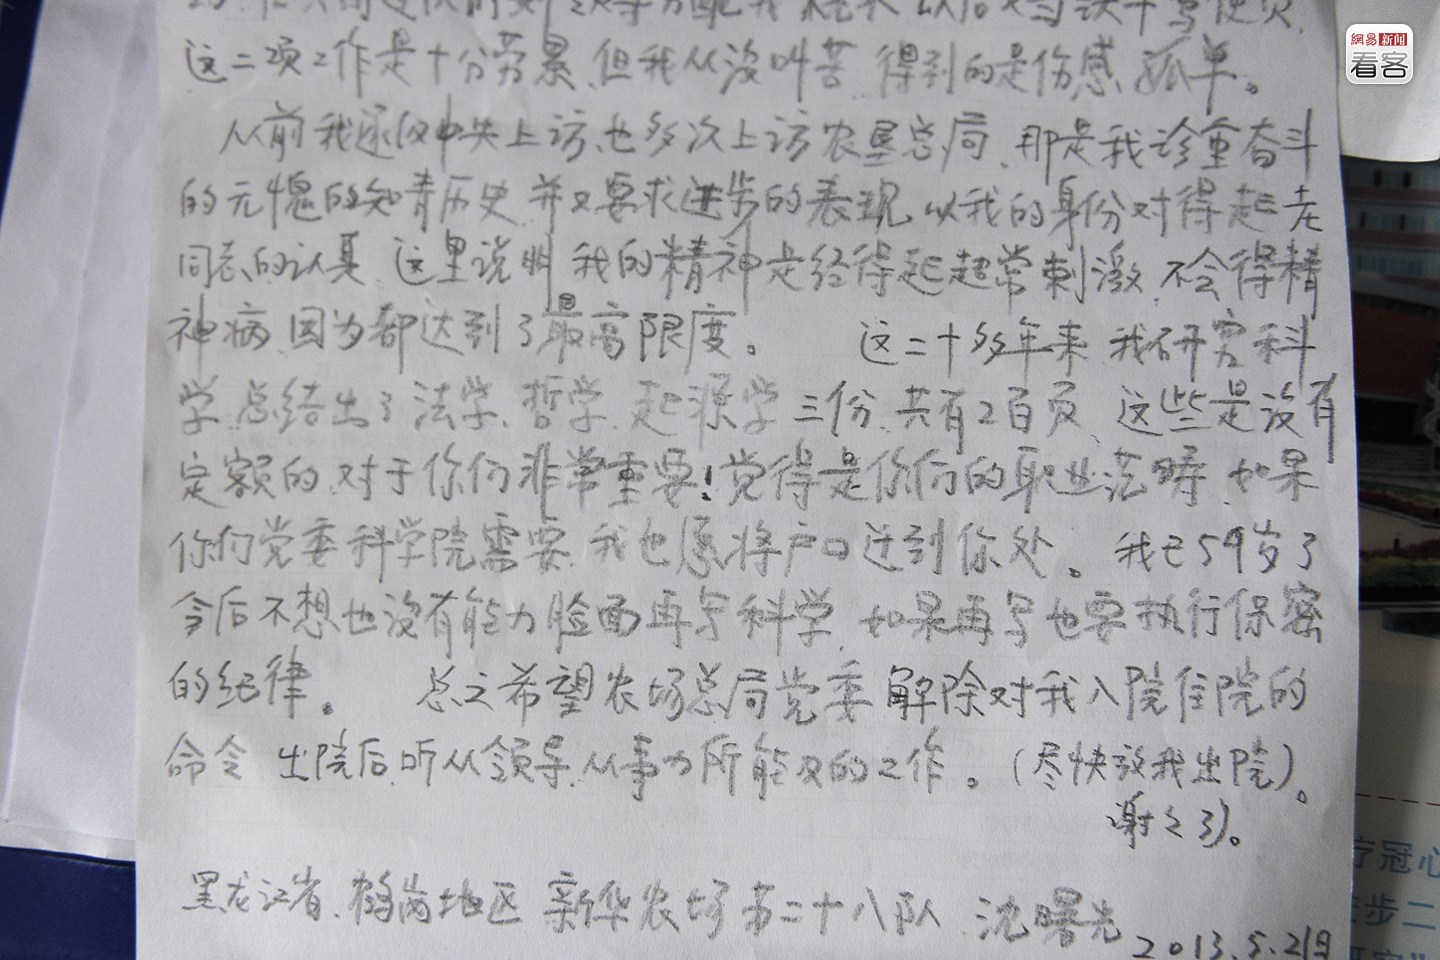 網易新闻
看客
这二项工作是十分劳累、但我从没叫苦、得到的是伤感、孤单。
从前我还仅中央上访、也多次上访农垦总局、那是我珍重奋斗
的元愧的知青历史、并又要求进步的表现、以我的身份对得起老
同志的认真、这里说明、我的精神是经得起超常刺激、不会得精
神病、因为都达到了最高限度。 这二十多年来、我研究科
学、总结出了法学、哲学、起源学三份、共有2百页、这些是没有
定额的、对于你们非常重要!觉得是你们的职业范畴、如果
你们党委科学院需要、我也愿将户口迁到你处。 我已59岁了
今后不想也没有能力脸面再写科学、如果再写也要执行保密
的纪律。 总之希望农场总局党委、解除对我入院住院的
命令、出院后、听从领导、从事力所能及的工作。(尽快放我出院)。
谢々了)。
黑龙江省、鹤岗地区 新华农场第二十八队 沈曙光
2013.5.21日
疗冠心
步二